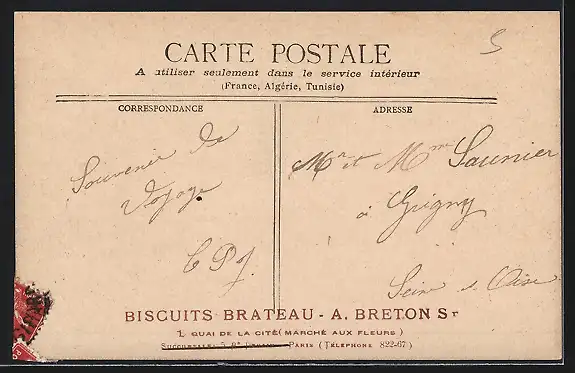 CARTE POSTALE
A utiliser seulement dans le service intérieur
(France, Algérie, Tunisie)
CORRESPONDANCE
Souvenir de
Voyage
ADRESSE
Mr et Mme Saunier
à Grigny
Seine & Oise
BISCUITS BRATEAU - A. BRETON Sr
1, QUAI DE LA CITÉ (MARCHÉ AUX FLEURS)
PARIS (TÉLÉPHONE 822-67)